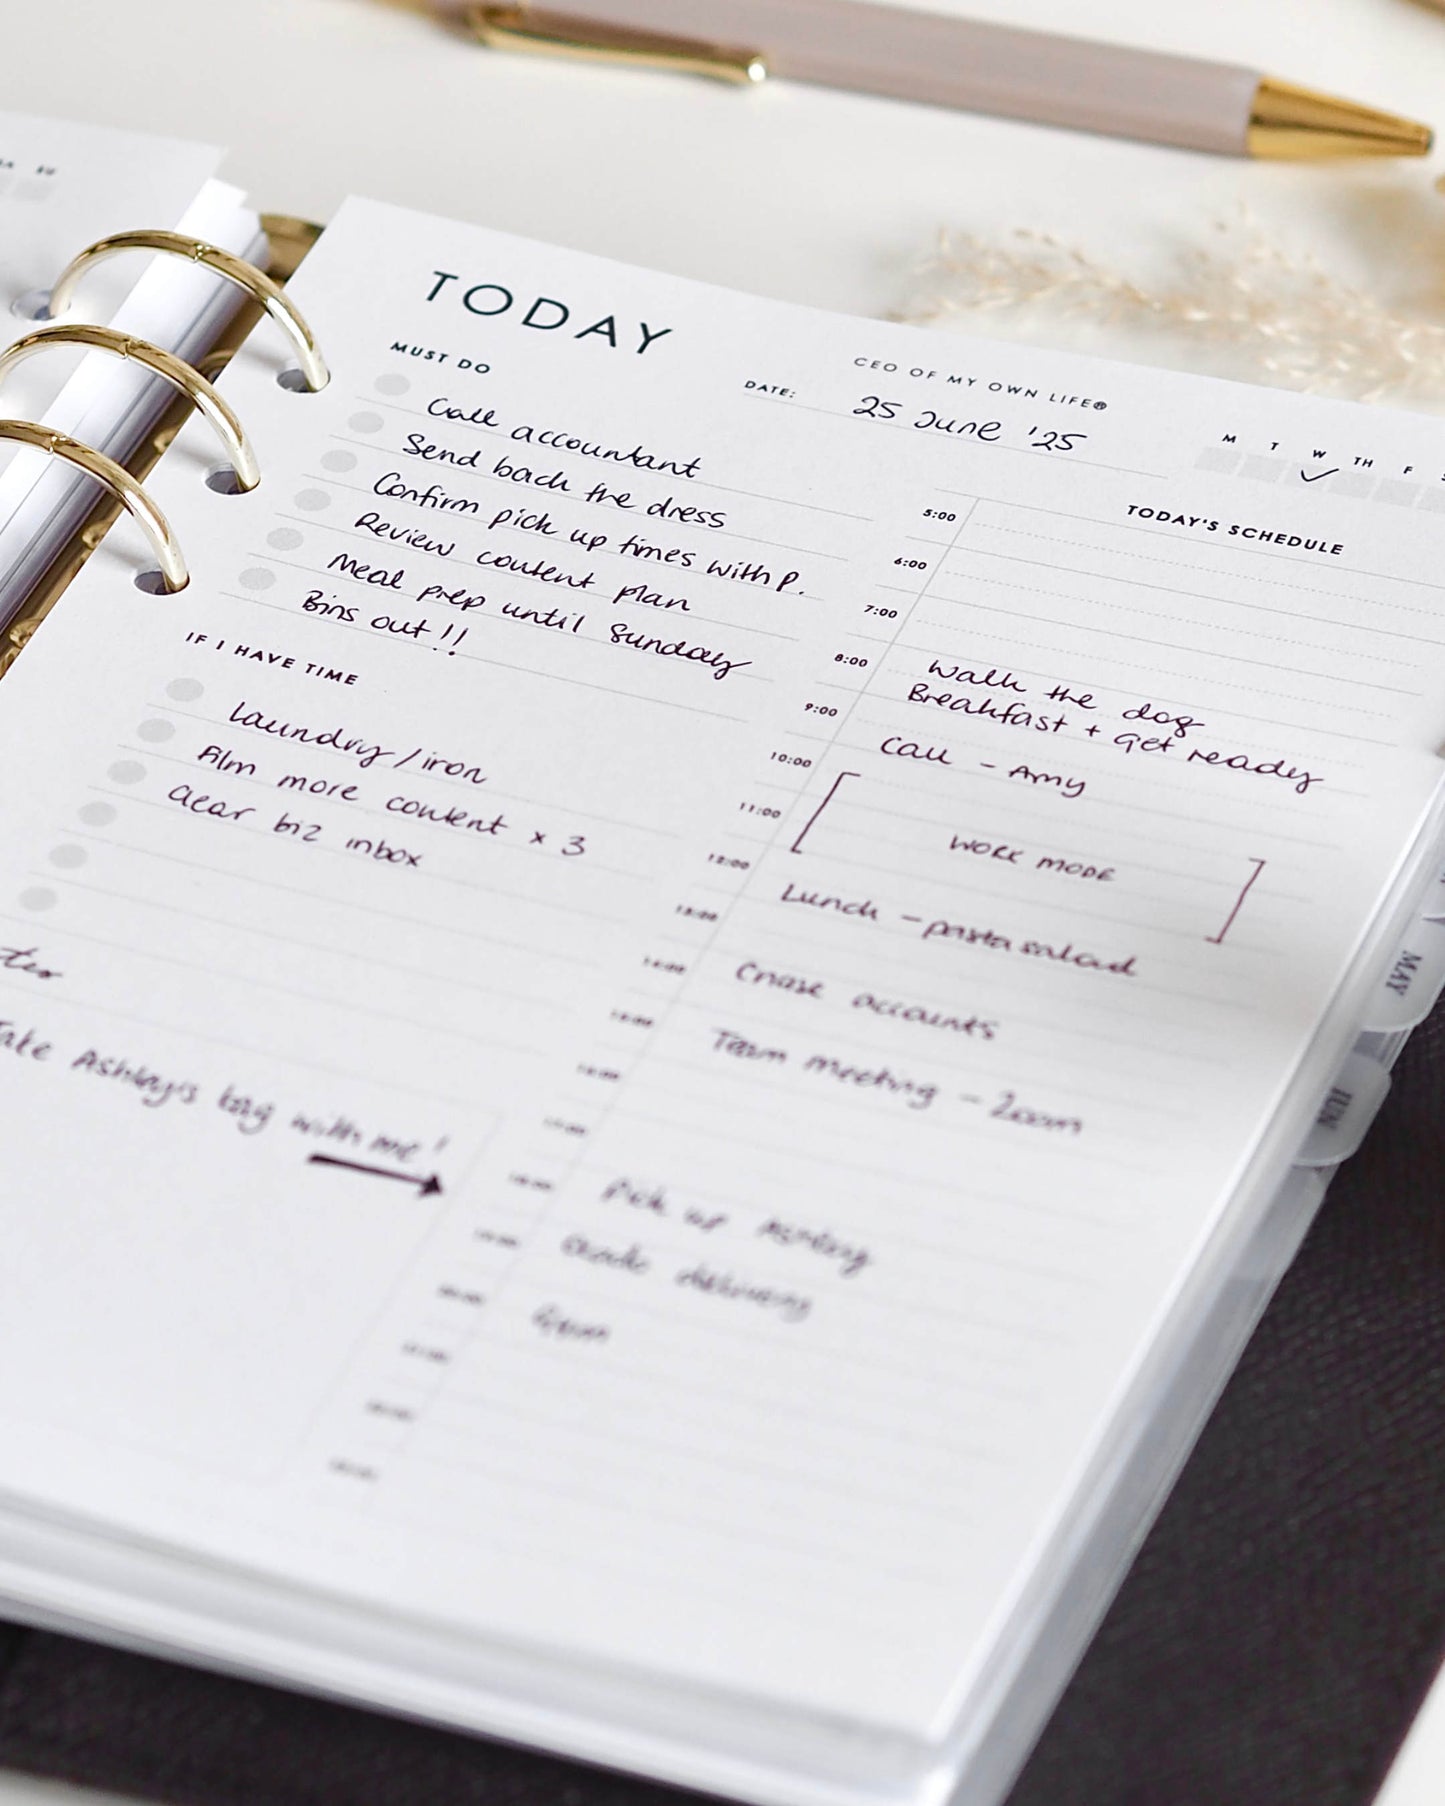 SU
TODAY
CEO OF MY OWN LIFE®
DATE: 25 June '25
M T W TH F
MUST DO
Call accountant
Send back the dress
Confirm pick up times with P.
Review content plan
Meal prep until Sunday
Bins out!!
IF I HAVE TIME
Laundry/iron
Film more content x 3
Clear biz inbox
Take Ashley's bag with me!
TODAY'S SCHEDULE
5:00
6:00
7:00
8:00 Walk the dog
Breakfast + get ready
9:00 Call - Amy
10:00
11:00 WORK MODE
12:00 Lunch - pasta salad
13:00
14:00 Chase accounts
15:00 Team meeting - Zoom
16:00
17:00
18:00 Pick up Ashley
19:00 delivery
20:00
21:00
MAY
JUN